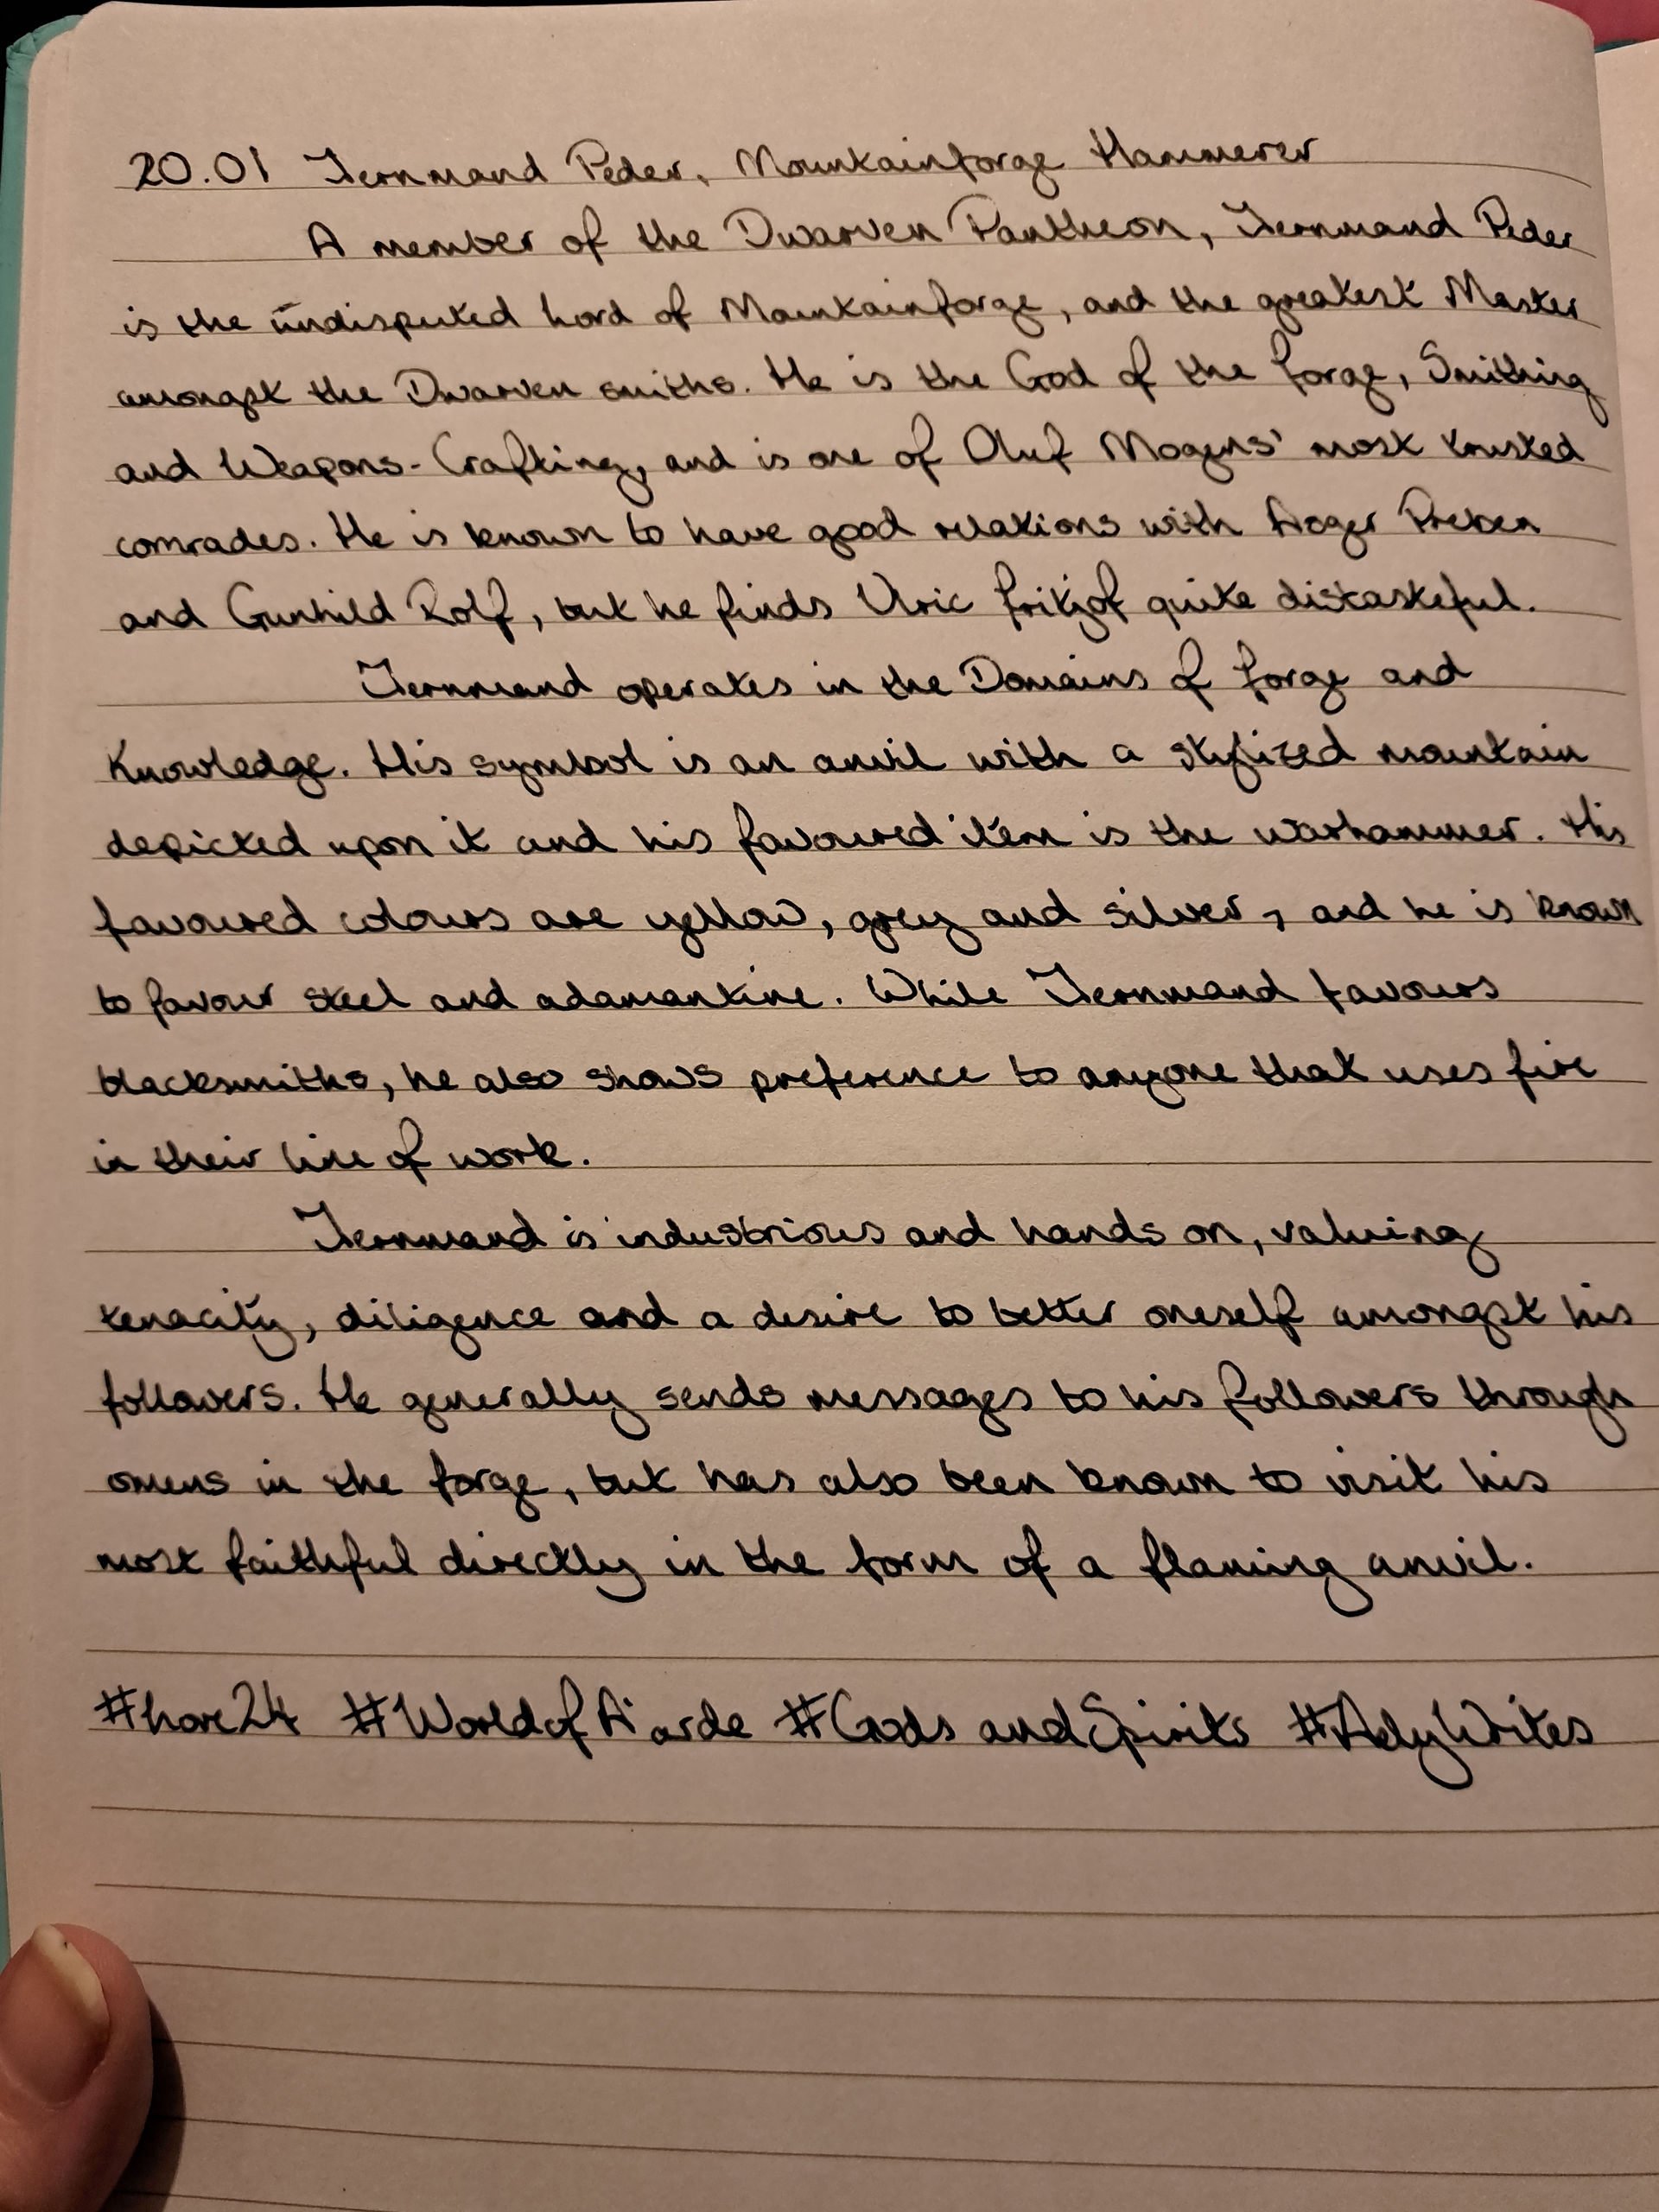 20.01 Jernmand Peder, Mountainforge Hammerer
A member of the Dwarven Pantheon, Jernmand Peder
is the undisputed Lord of Mountainforge, and the greatest Master
amongst the Dwarven smiths. He is the God of the Forge, Smithing
and Weapons-Crafting, and is one of Oluf Mogens' most trusted
comrades. He is known to have good relations with Asger Preben
and Gunhild Rolf, but he finds Ulric Fritjof quite distasteful.
Jernmand operates in the Domains of Forge and
Knowledge. His symbol is an anvil with a stylized mountain
depicted upon it and his favoured item is the warhammer. His
favoured colours are yellow, grey and silver, and he is known
to favour steel and adamantine. While Jernmand favours
blacksmiths, he also shows preference to anyone that uses fire
in their line of work.
Jernmand is industrious and hands on, valuing
tenacity, diligence and a desire to better oneself amongst his
followers. He generally sends messages to his followers through
omens in the forge, but has also been known to visit his
most faithful directly in the form of a flaming anvil.
#Lore24 #WorldofAi'arde #GodsandSpirits #AdyWrites